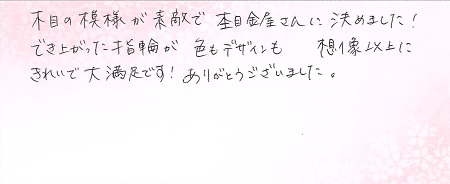 木目の模様が素敵で杢目金屋さんに決めました!
でき上がった指輪が 色もデザインも 想像以上に
きれいで大満足です!ありがとうございました。